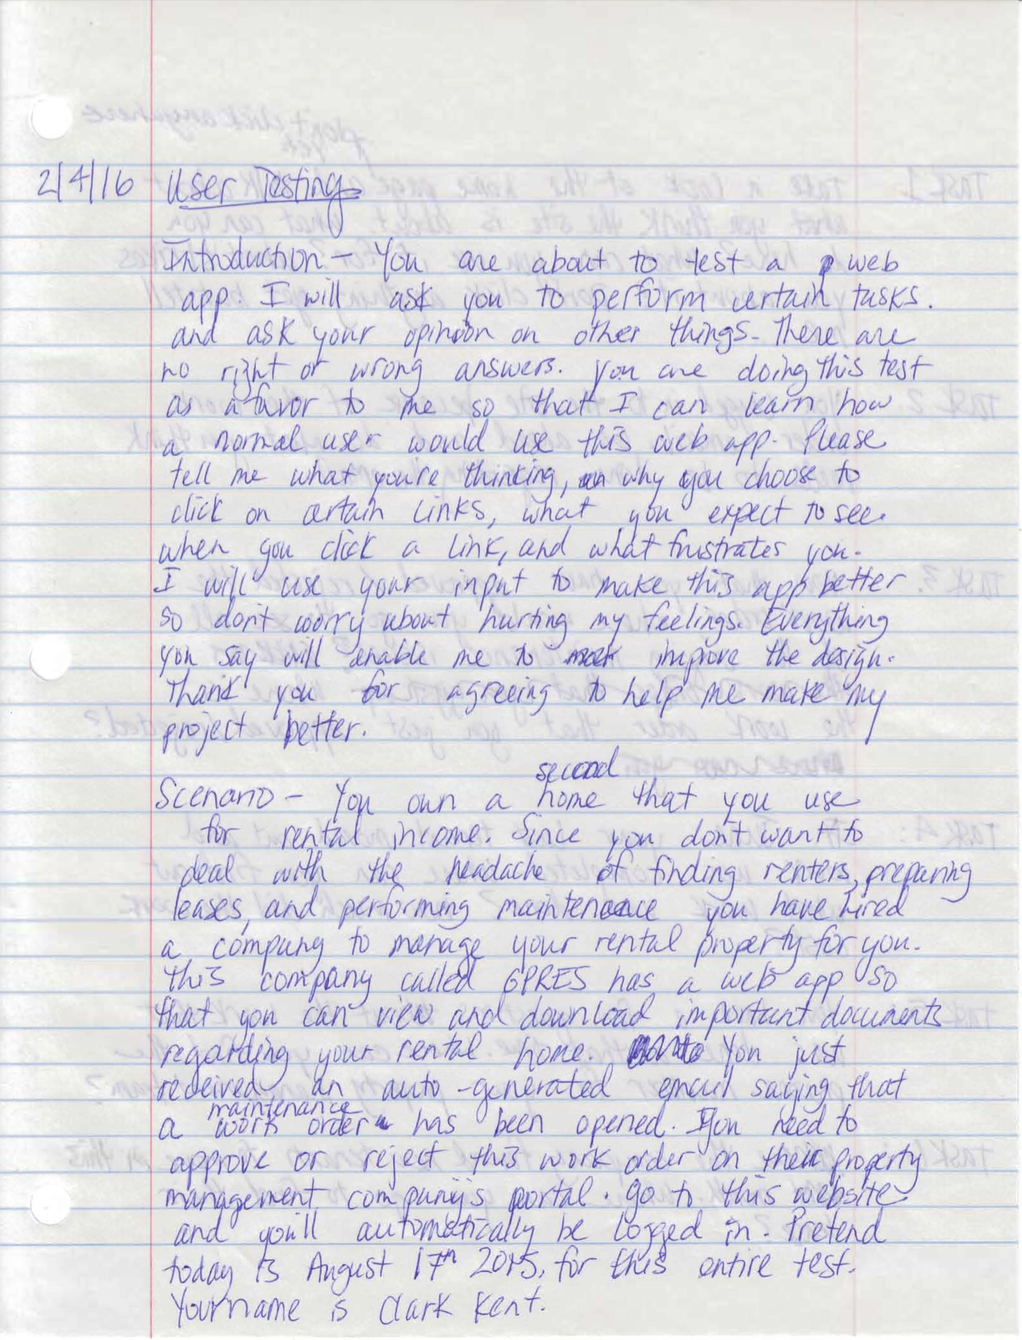 2/4/16 User Testing
Introduction - You are about to test a web
app. I will ask you to perform certain tasks.
and ask your opinion on other things. There are
no right or wrong answers. You are doing this test
as a favor to me so that I can learn how
a normal user would use this web app. Please
tell me what you're thinking, why you choose to
click on certain links, what you expect to see
when you click a link, and what frustrates you.
I will use your input to make this app better
so don't worry about hurting my feelings. Everything
you say will enable me to improve the design.
Thank you for agreeing to help me make my
project better.
second
Scenario - You own a home that you use
for rental income. Since you don't want to
deal with the headache of finding renters, preparing
leases, and performing maintenance you have hired
a company to manage your rental property for you.
This company called GPRES has a web app so
that you can view and download important documents
regarding your rental home. You just
received an auto-generated email saying that
maintenance
a work order has been opened. You need to
approve or reject this work order on their property
management company's portal. Go to this website
and you'll automatically be logged in. Pretend
today is August 17th 2015, for this entire test.
Your name is Clark Kent.